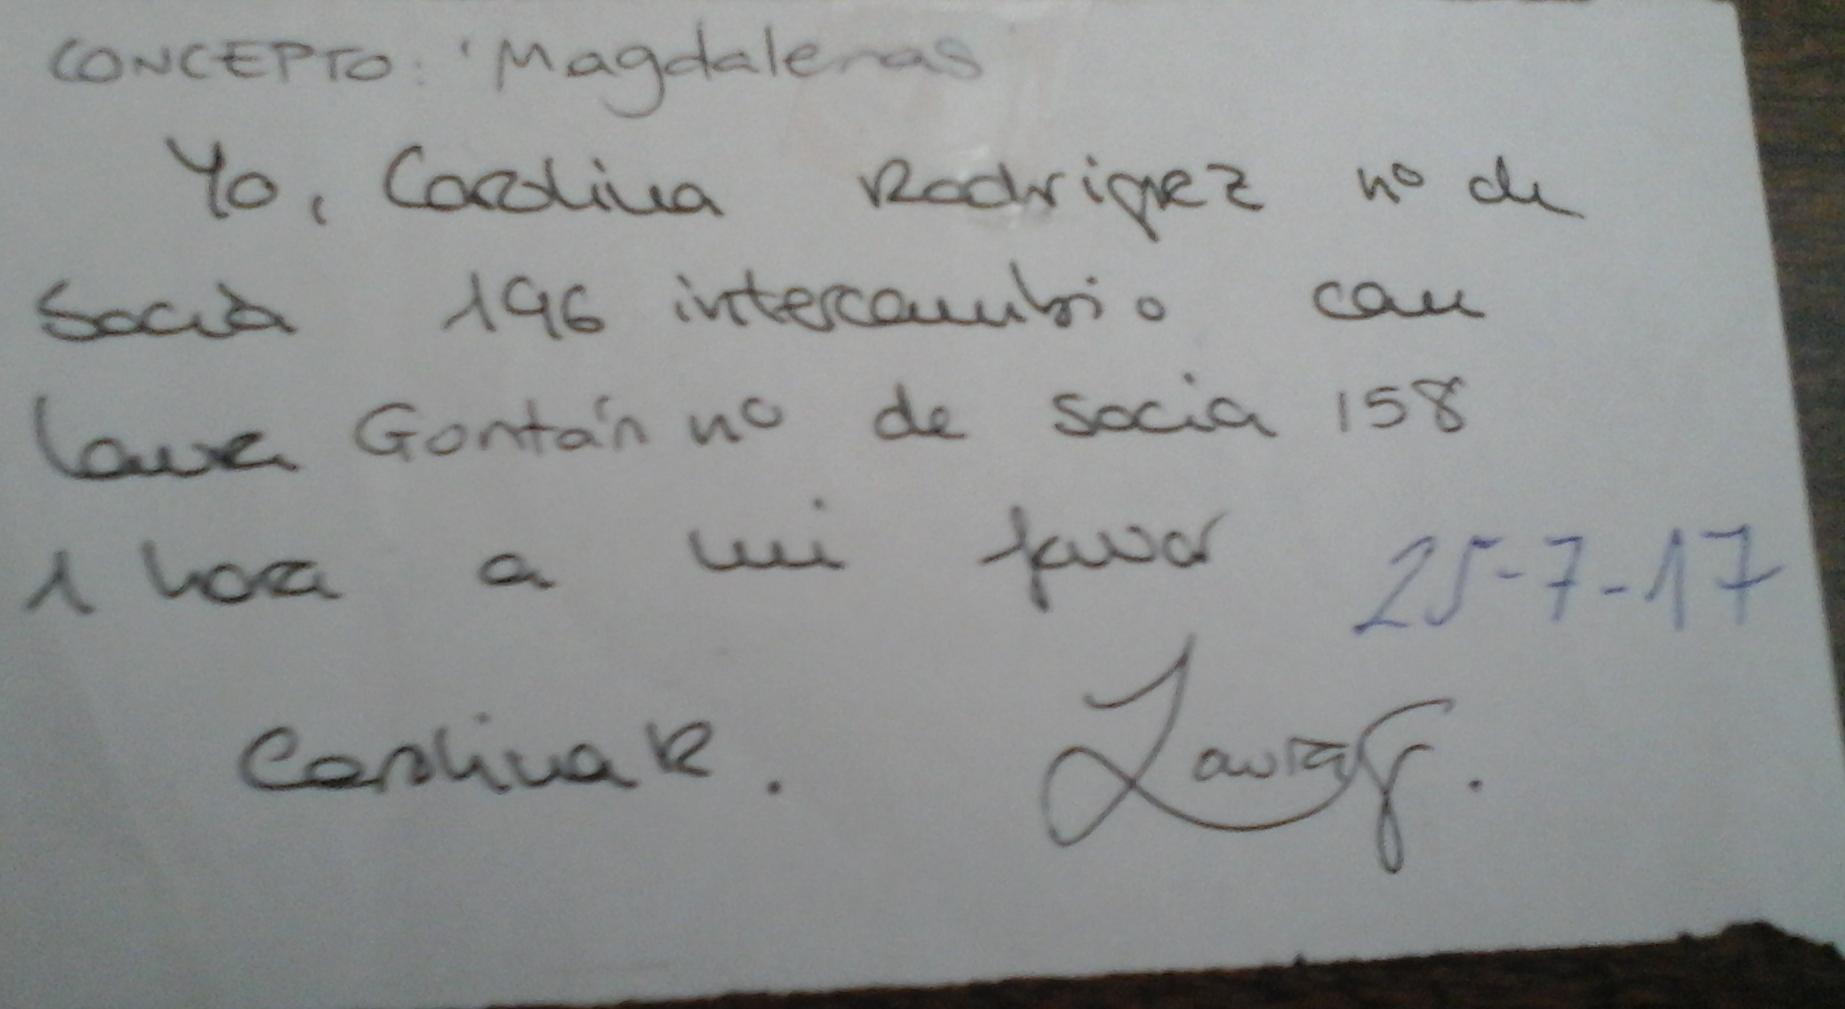 CONCEPTO: 'Magdalenas
Yo, Carolina Rodriguez nº de
Socia 196 intercambio con
Laura Gontán nº de socia 158
1 hora a mi favor 25-7-17
Carolina R. Laura G.